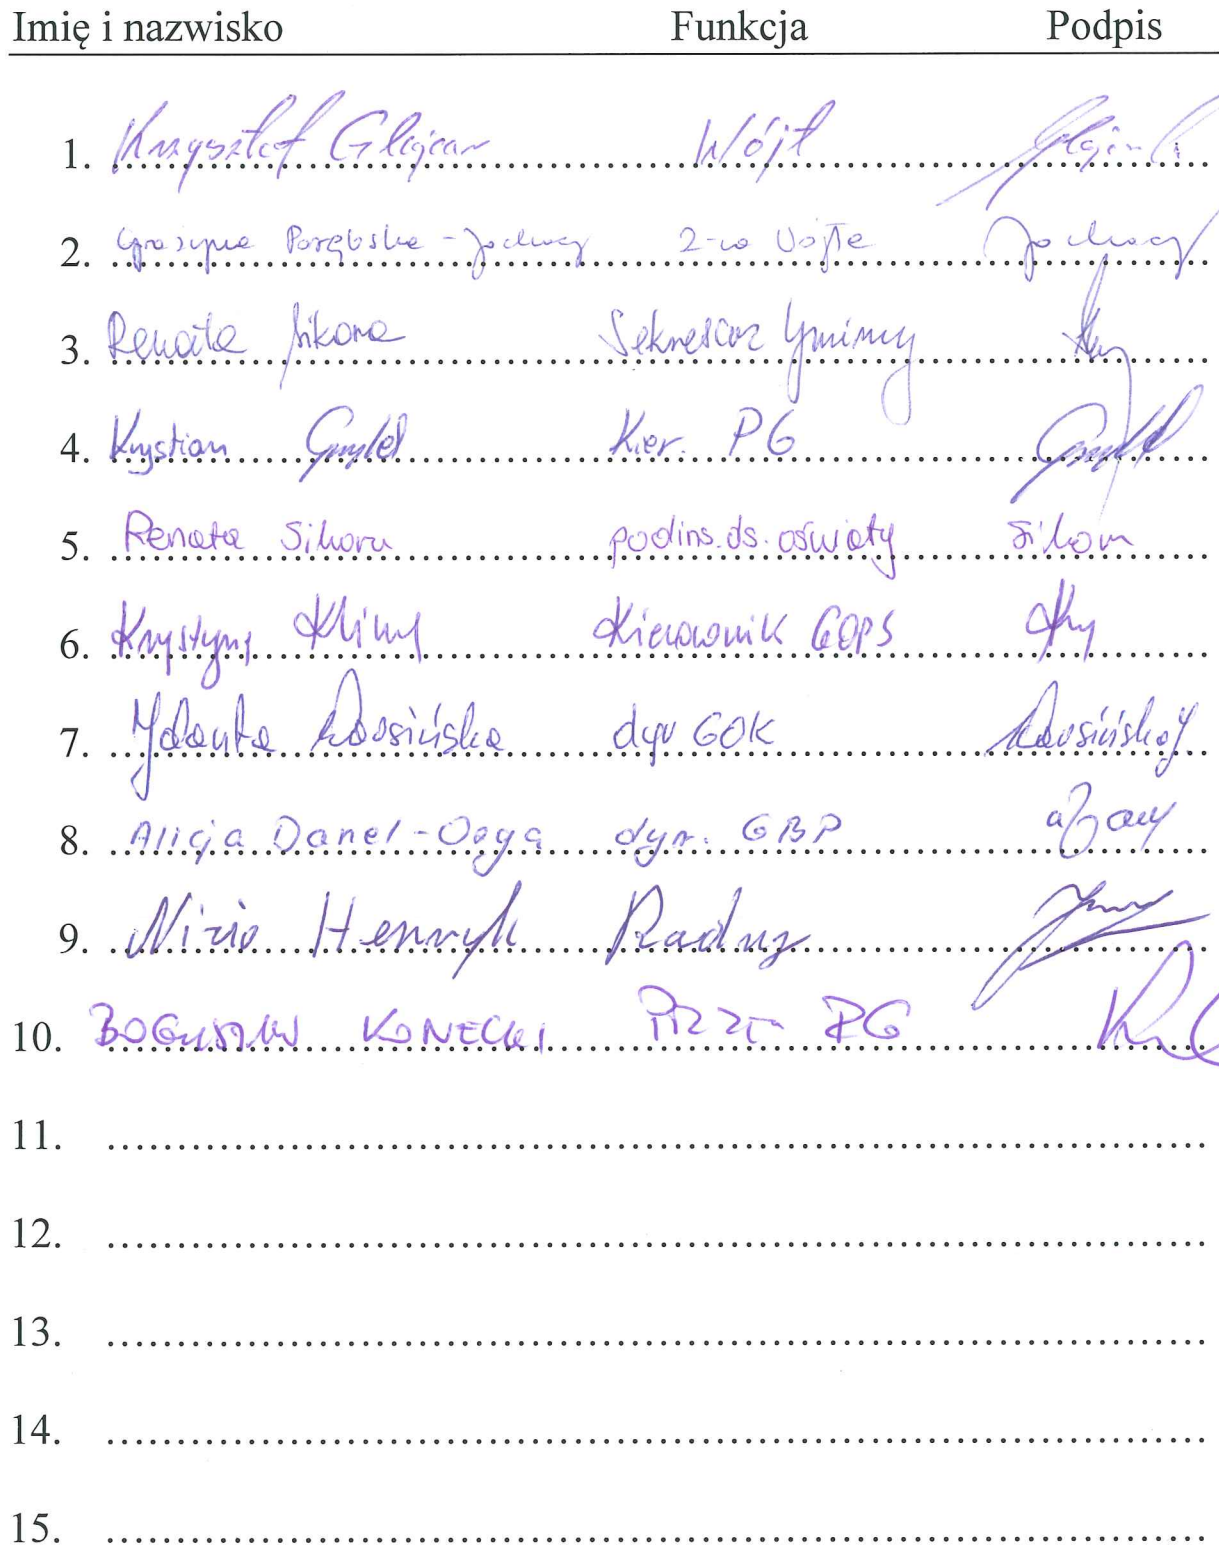 Imię i nazwisko Funkcja Podpis
1. Krzysztof Glajcar Wójt
2. Grażyna Porębska-Jochacy Z-ca Wójta Jochacy
3. Renata Sikora Sekretarz Gminy
4. Krystian Kier. PG
5. Renata Sikora podins.ds.oświaty Sikora
6. Krystyna Klimy Kierownik GOPS
7. Jolanta dyr GOK
8. Alicja Danel-Ooga dyr. GBP
9. Henryk Radny
10. BOGUSŁAW KONECKI RG
11.
12.
13.
14.
15.